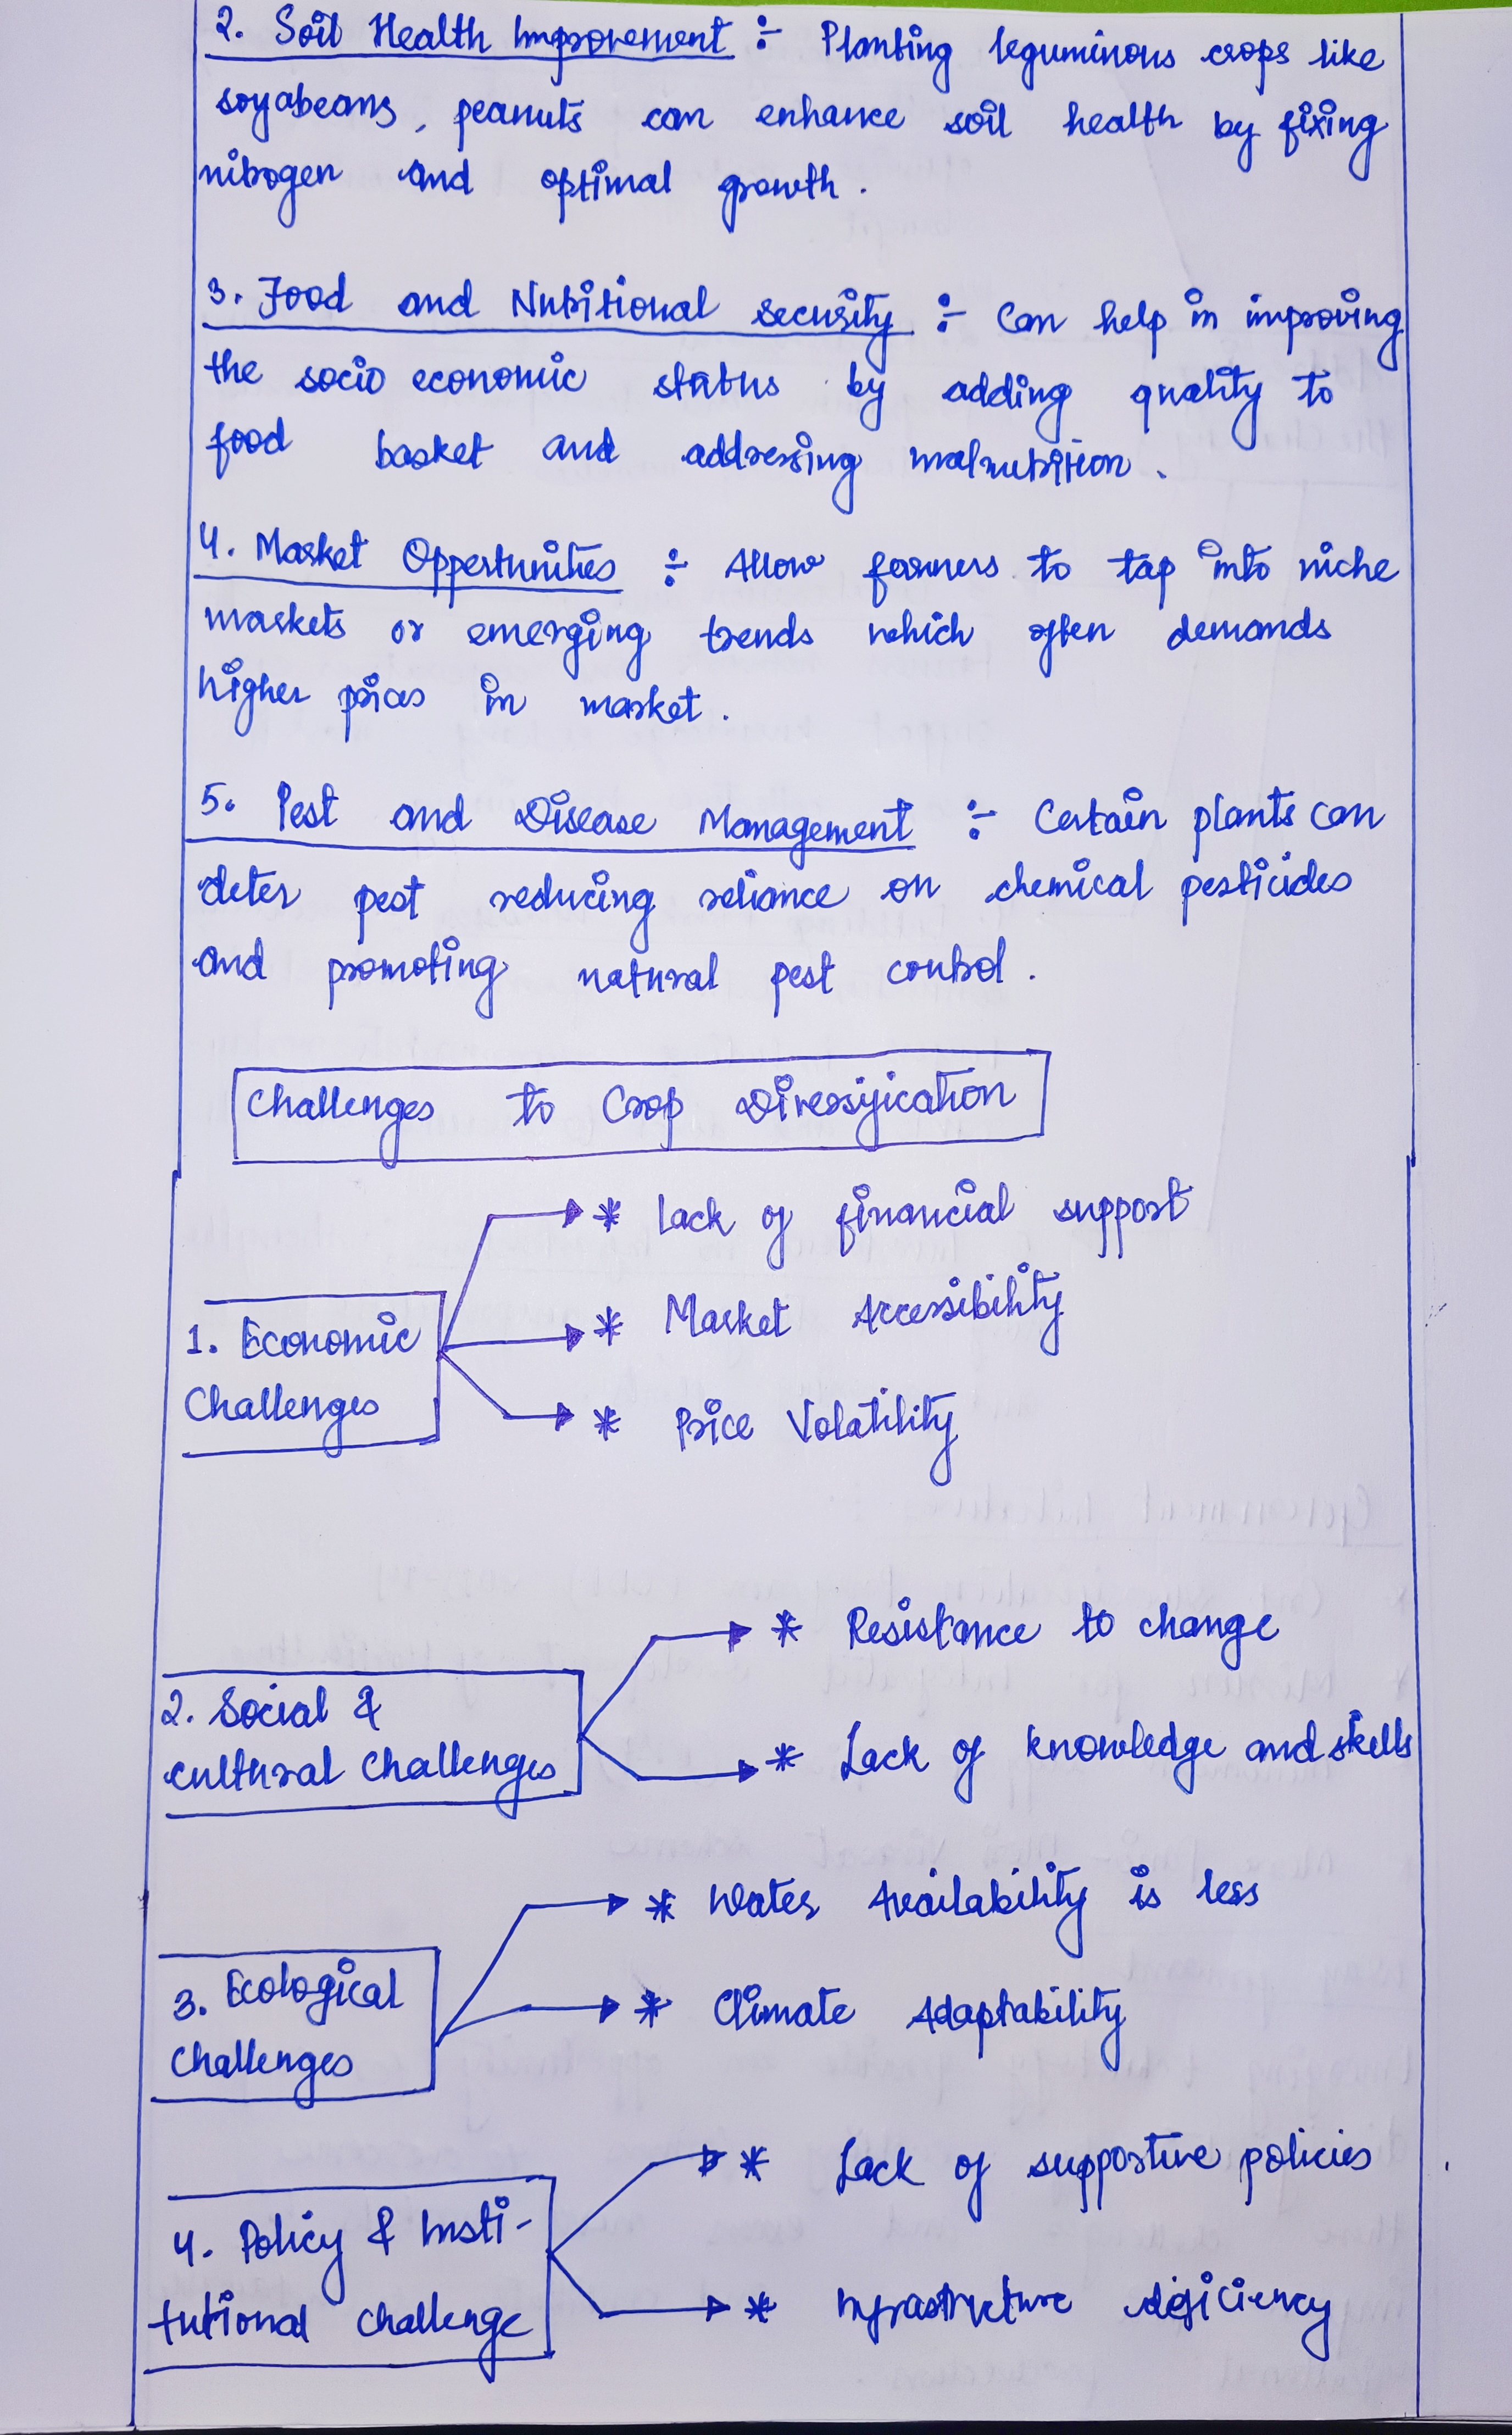 2. Soil Health Improvement ÷ Planting leguminous crops like
soyabeans, peanuts can enhance soil health by fixing
nitrogen and optimal growth.
3. Food and Nutritional security ÷ Can help in improving
the socio economic status by adding quality to
food basket and addressing malnutrition.
4. Market Opportunities ÷ Allow farmers to tap into niche
markets or emerging trends which often demands
higher prices in market.
5. Pest and Disease Management ÷ Certain plants can
deter pest reducing reliance on chemical pesticides
and promoting natural pest control.
Challenges to Crop Diversification
* Lack of financial support
1. Economic
Challenges
* Market Accessibility
* Price Volatility
2. Social &
cultural challenges
* Resistance to change
* Lack of knowledge and skills
3. Ecological
challenges
* Water Availability is less
* Climate Adaptability
4. Policy & Insti-
tutional challenge
* Lack of supportive policies
* Infrastructure deficiency